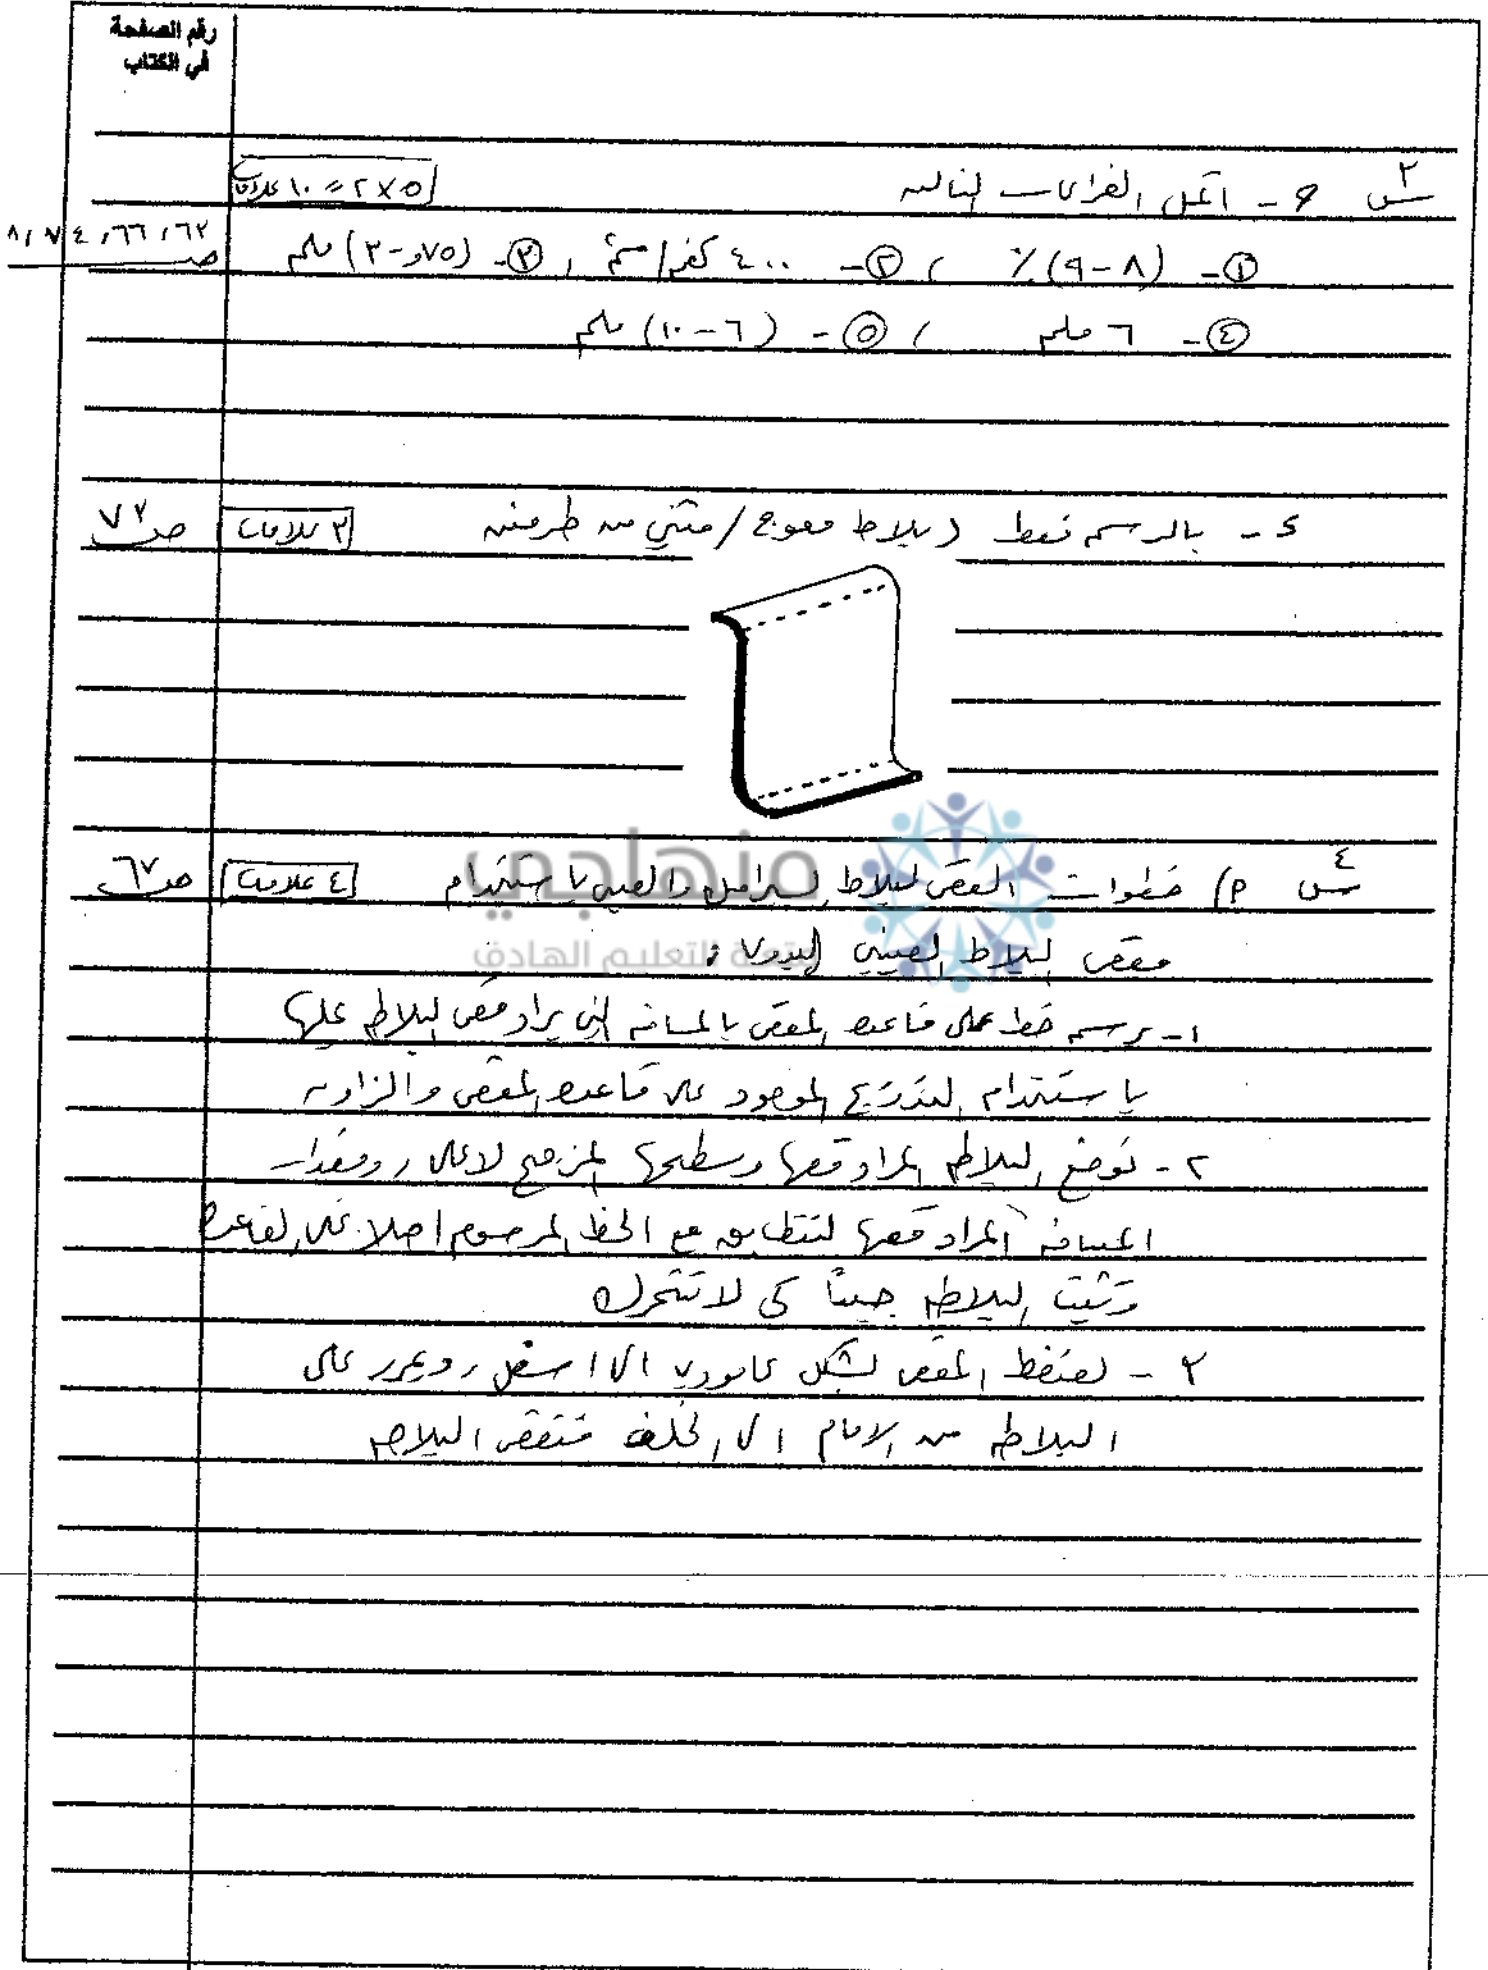 رقم الصفحة
في الكتاب
س٣ جـ - اكمل الفراغات التالية ٥×٢ = ١٠ علامات
ص ٦٣، ٦٦، ٧٤، ٨١
①- (٨-٩)٪ ، ②- ٤٠٠ كغم/سم٢ ، ③- (٧٥و-٣) ملم
④- ٦ ملم ، ⑤- (٦-١٠) ملم
د - بالرسم فقط (بلاط معوج / مثني من طرفيه ٣ علامات ص٧٣
منهاجي
متعة التعليم الهادف
س٤ أ) خطوات القص لبلاط السراميك والصيني باستخدام ٤ علامات ص٦٧
مقص البلاط الصيني اليدوي:
١- يرسم خط على قاعدة المقص بالمسافة التي يراد قص البلاط عليها
باستخدام التدريج الموجود على قاعدة المقص والزاوية
٢- توضع البلاطة المراد قصها وسطحها المزجج لاعلى، ومقدار
المسافة المراد قصها لتتطابق مع الخط المرسوم اصلا على القاعدة
وتثبت البلاطة جيداً كي لا تتحرك
٣- يضغط المقص بشكل عامودي الى اسفل، ويمرر على
البلاطة من الامام الى الخلف فتقص البلاطة